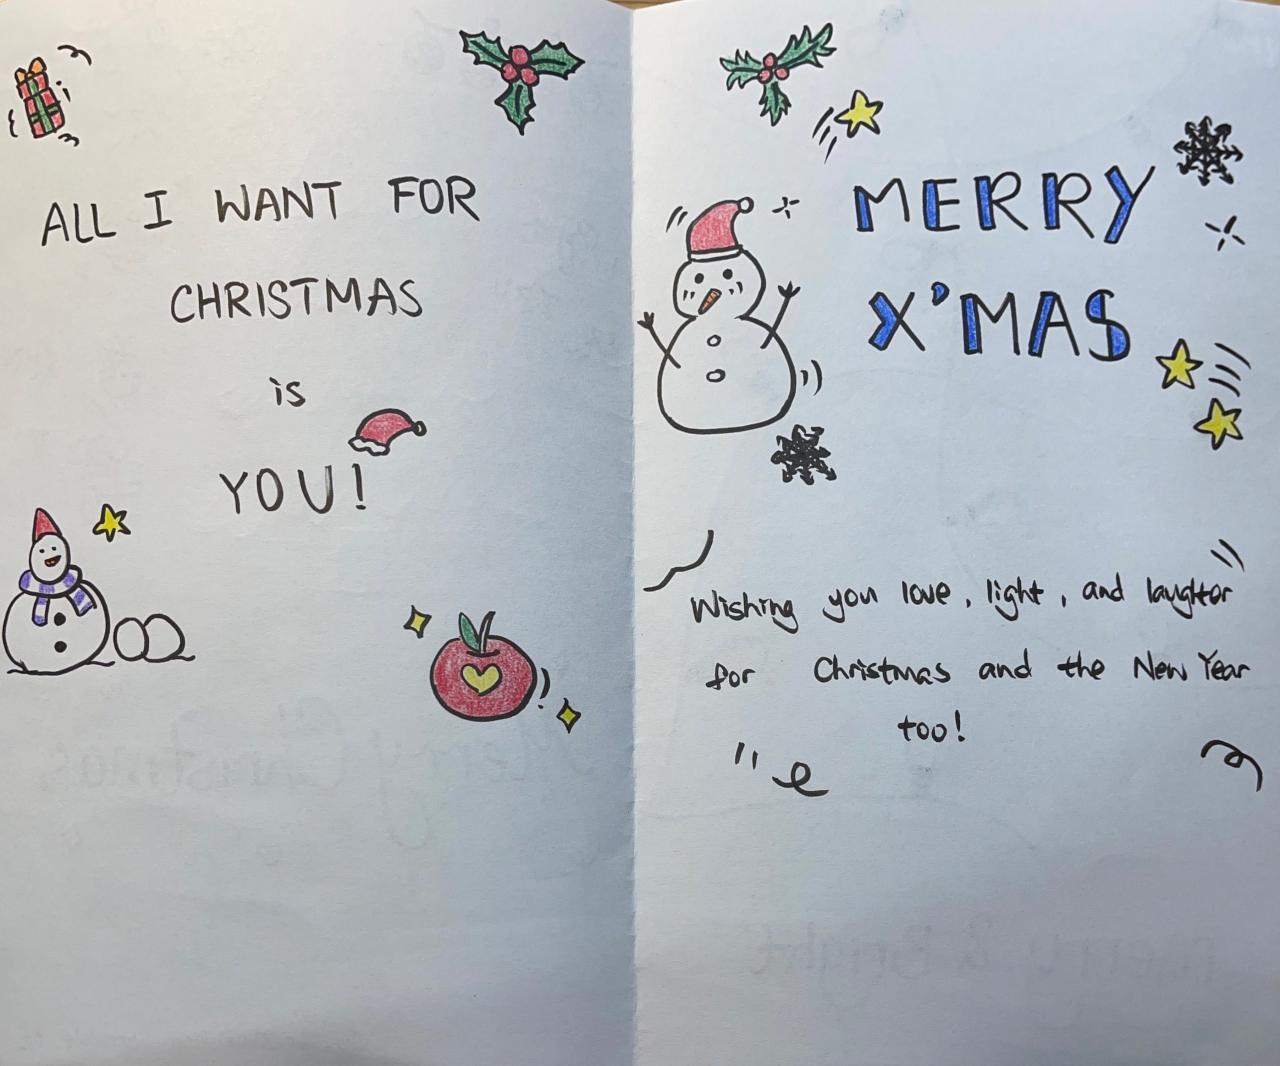 ALL I WANT FOR
CHRISTMAS
is
YOU!
MERRY
X'MAS
Wishing you love, light, and laughter
for Christmas and the New Year
too!
Merry Christmas
Merry & Bright